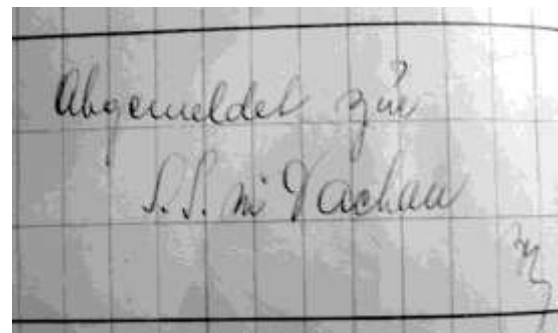 Abgemeldet zur
S.S. in Dachau